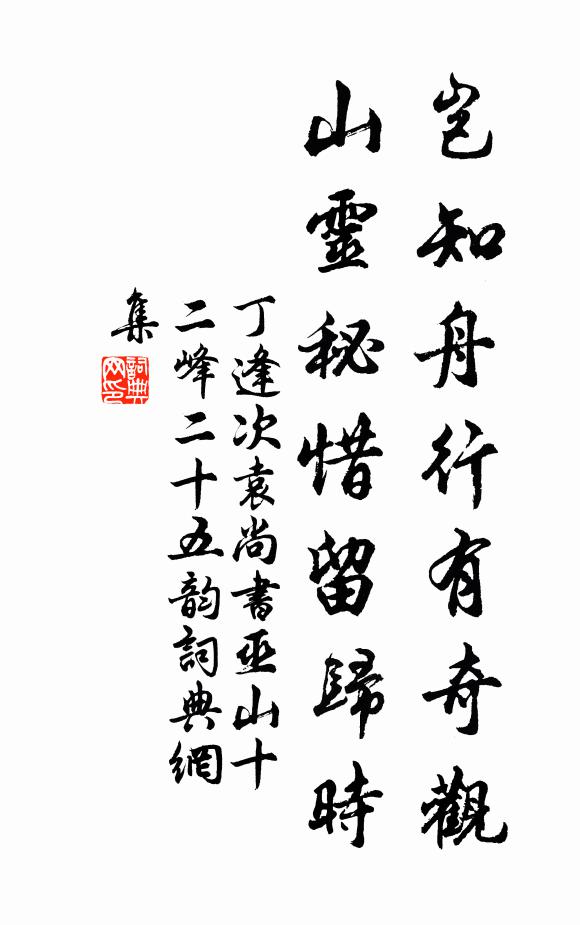 豈知舟行有奇觀
山靈秘惜留歸時
丁逢次袁尚書巫山十
二峰二十五韵詞典網
集
詞典
网印